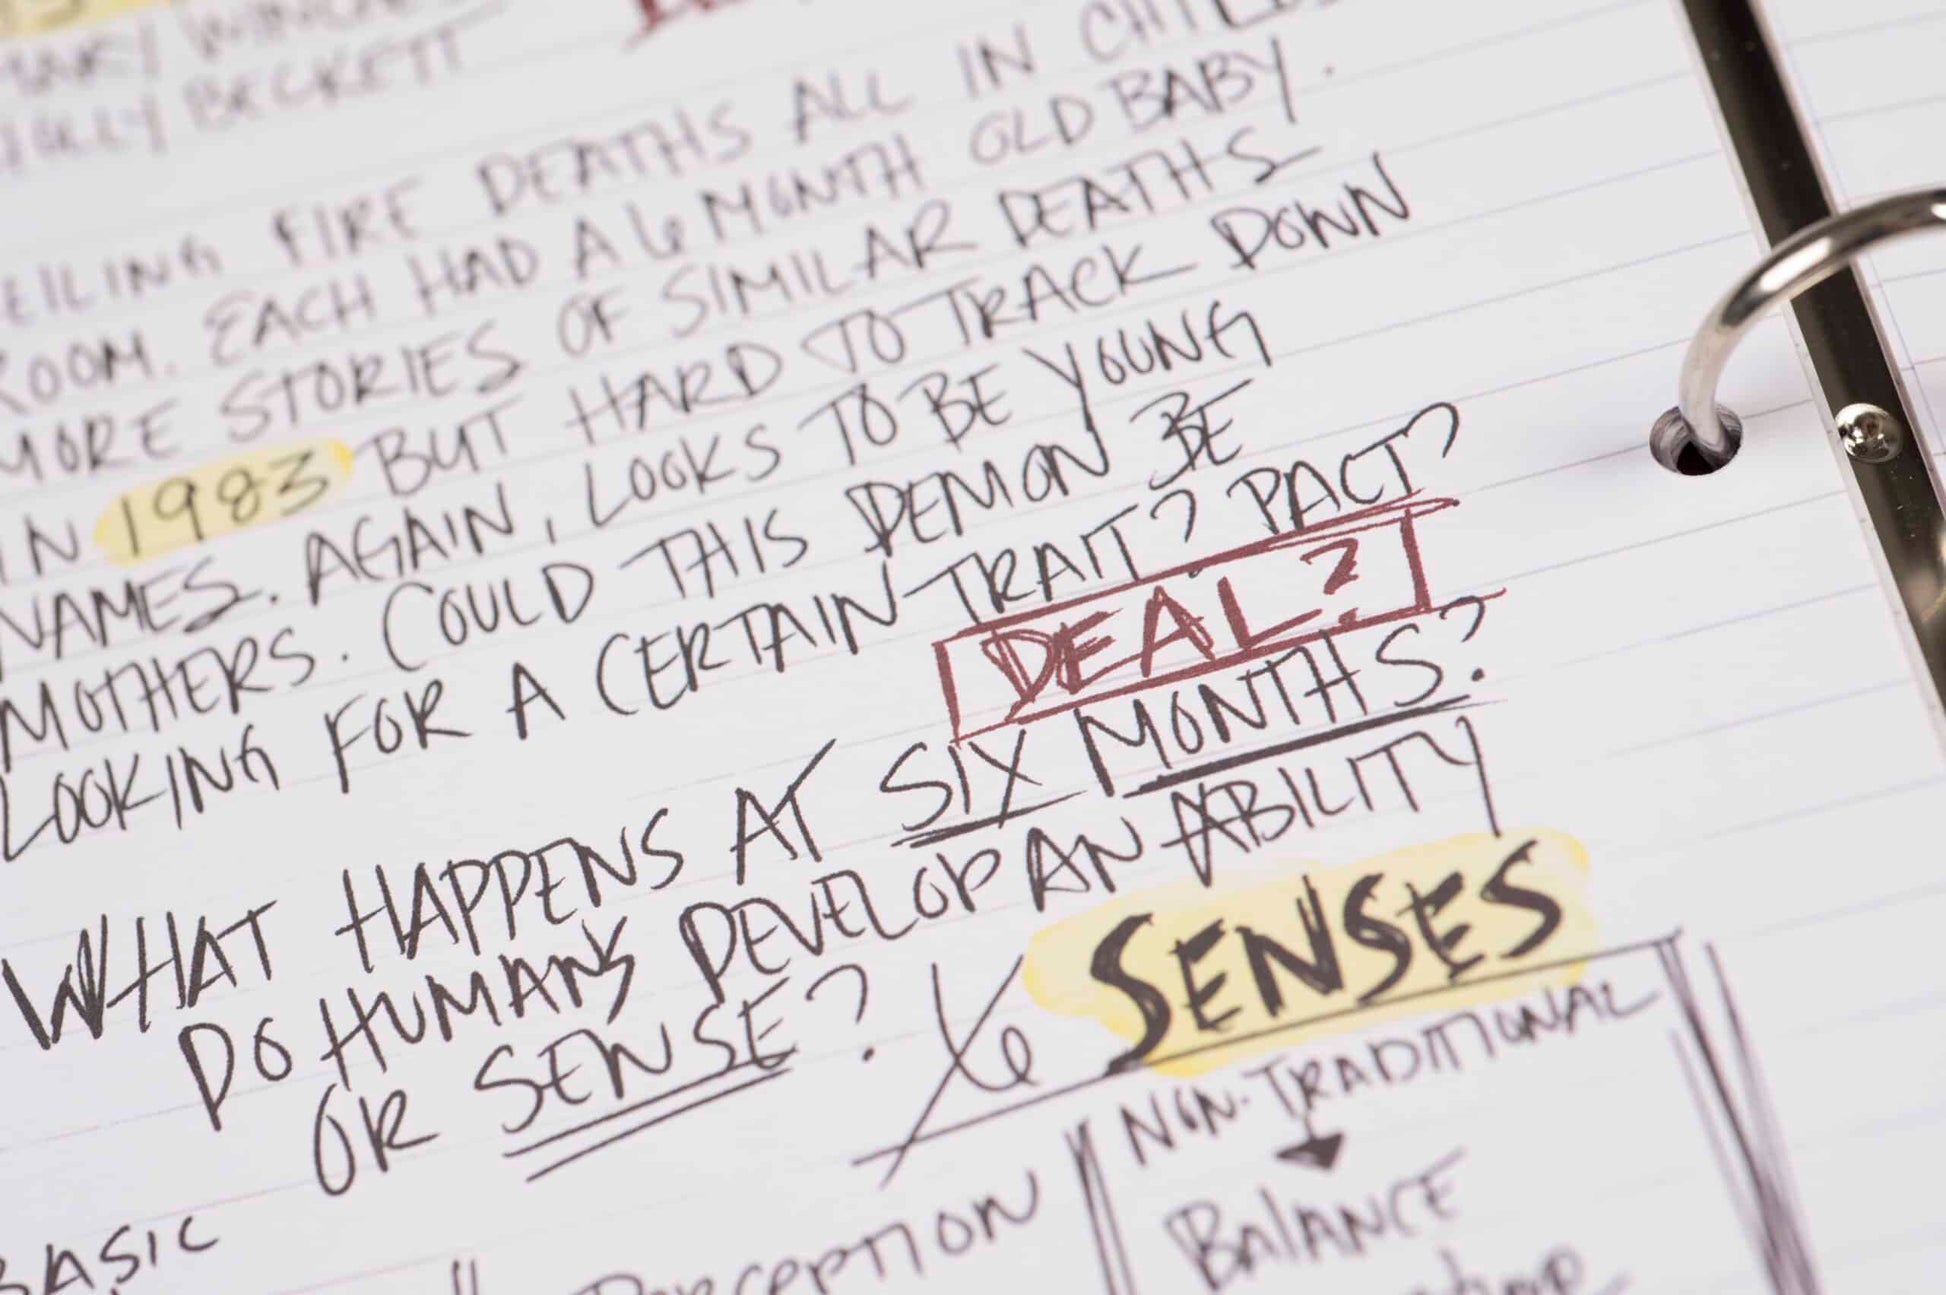 BECKETT
FIRE DEATHS ALL IN
ROOM. EACH HAD A 6 MONTH OLD BABY.
MORE STORIES OF SIMILAR DEATHS
IN 1983 BUT HARD TO TRACK DOWN
NAMES. AGAIN, LOOKS TO BE YOUNG
MOTHERS. COULD THIS DEMON BE
LOOKING FOR A CERTAIN TRAIT? PACT?
DEAL?
WHAT HAPPENS AT SIX MONTHS?
DO HUMANS DEVELOP AN ABILITY
OR SENSE? 6 SENSES
NON-TRADITIONAL
BASIC
PERCEPTION
BALANCE